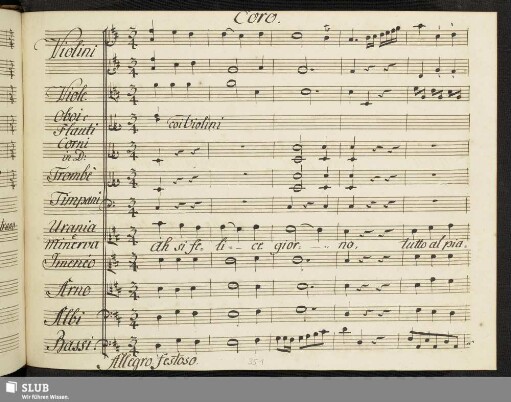 Coro.
Violini
Viole.
Oboi e
Flauti
coi Violini
Corni
in D.
Trombe
Timpani
Urania
e
Minerva
Ah si fe. li -- ce gior. -- -- no. tutto al pia.
Imenéo
Arno
Albi
Bassi
Allegro festoso.
SLUB
Wir führen Wissen.